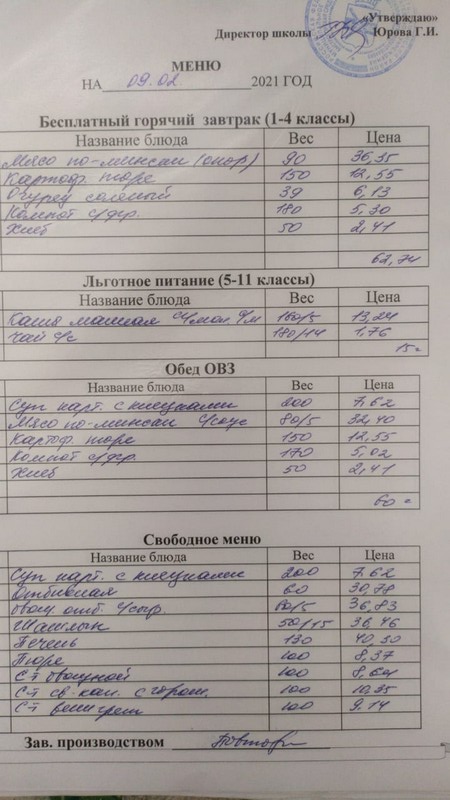 «Утверждаю»
Директор школы Юрова Г.И.
МЕНЮ
НА 09.02. 2021 ГОД
Бесплатный горячий завтрак (1-4 классы)
Название блюда Вес Цена
Мясо по-мински 90 36,35
Картоф. пюре 150 12,55
Огурец соленый 39 6,13
Компот с/фр. 180 5,30
Хлеб 50 2,41
62,74
Льготное питание (5-11 классы)
Название блюда Вес Цена
Каша манная 13,24
Чай 1,76
15=
Обед ОВЗ
Название блюда Вес Цена
Суп карт. с клецками 200 7,62
Мясо по-мински с/соус 80/5 32,40
Картоф. пюре 150 12,55
Компот с/фр. 170 5,02
Хлеб 50 2,41
60=
Свободное меню
Название блюда Вес Цена
Суп карт. с клецками 200 7,62
Отбивная 60 30,78
отб. с/сыр. 36,83
Шашлык 50/15 36,46
Печень 130 40,50
Пюре 100 8,37
С-т овощной 100
С-т св-кап. 100
С-т винегрет 100 9,14
Зав. производством